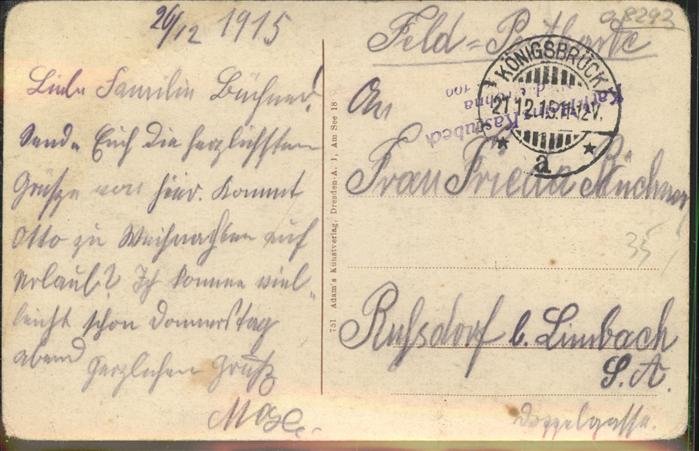 26/12 1915
Liebe Familie Büchner!
Sende Euch die herzlichsten
Grüße von hier. Kommt
Otto zu Weihnachten auf
Urlaub? Ich komme viel-
leicht schon Donnerstag
abend herzlichen Gruß
Max.
751 Adam's Kunstverlag, Dresden-A. 1, Am See 18
a 8293
Feld-Postkarte
KÖNIGSBRÜCK
27.12.15.11-12V.
* a *
An
Frau Frieda Büchner
35
Rußdorf b. Limbach
S. A.